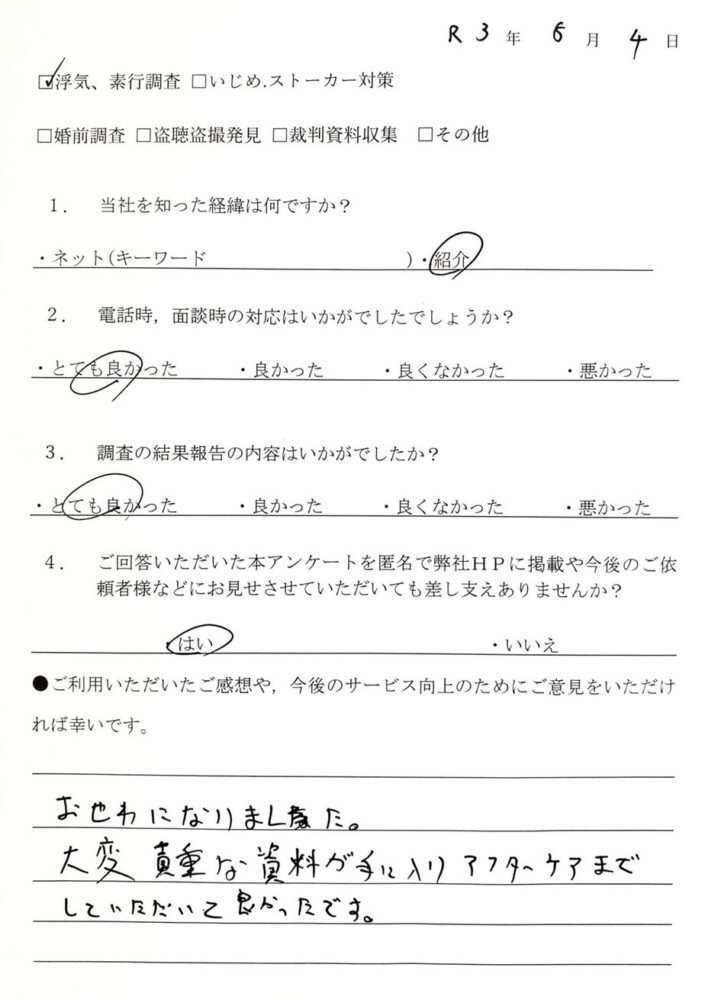 R 3 年 6 月 4 日
☑浮気、素行調査 □いじめ.ストーカー対策
□婚前調査 □盗聴盗撮発見 □裁判資料収集 □その他
1. 当社を知った経緯は何ですか？
・ネット(キーワード )・紹介
2. 電話時, 面談時の対応はいかがでしたでしょうか？
・とても良かった ・良かった ・良くなかった ・悪かった
3. 調査の結果報告の内容はいかがでしたか？
・とても良かった ・良かった ・良くなかった ・悪かった
4. ご回答いただいた本アンケートを匿名で弊社ＨＰに掲載や今後のご依
頼者様などにお見せさせていただいても差し支えありませんか？
・はい ・いいえ
●ご利用いただいたご感想や, 今後のサービス向上のためにご意見をいただけ
れば幸いです。
おせわになりました。
大変 貴重な資料が手に入り アフターケアまで
していただいて良かったです。